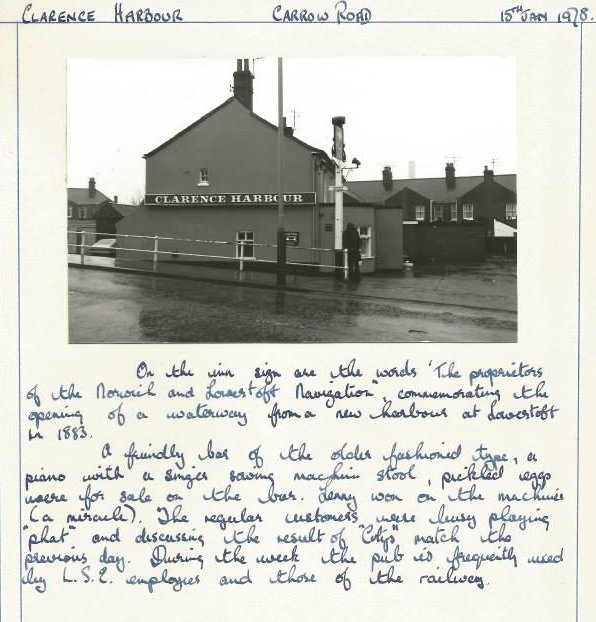 CLARENCE HARBOUR CARROW ROAD 15TH JAN 1978.
CLARENCE HARBOUR
On the inn sign are the words 'The proprietors
of the Norwich and Lowestoft Navigation", commemorating the
opening of a waterway from a new harbour at Lowestoft
in 1883.
A friendly bar of the older fashioned type, a
piano with a singer sewing machin stool, pickled eggs
were for sale on the bar. Lenny won on the machines
(a miracle). The regular customers were busy playing
"phat" and discussing the result of "Citys" match the
previous day. During the week the pub is frequently used
by L.S.E. employees and those of the railway.